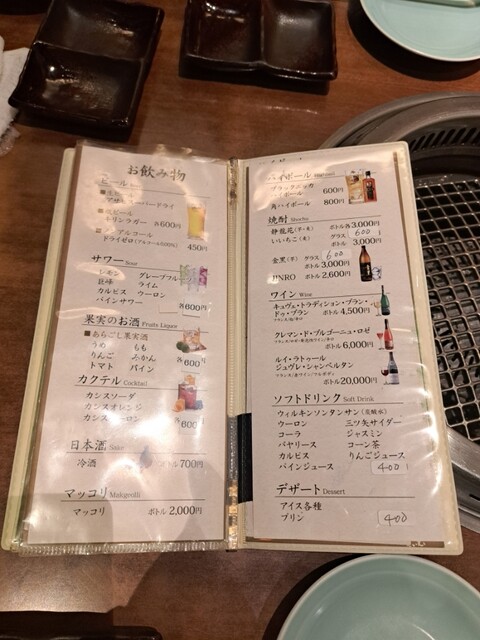 お飲み物
ビール
■生ビール
アサヒスーパードライ
■瓶ビール
キリンラガー 各600円
■ノンアルコール
ドライゼロ(アルコール0.00%) 450円
サワー Sour
レモン グレープフルーツ
巨峰 ライム
カルピス ウーロン
パインサワー 各600円
果実のお酒 Fruits Liquor
■あらごし果実酒
うめ もも
りんご みかん
トマト パイン 各600円
カクテル Cocktail
カシスソーダ
カシスオレンジ
カシスウーロン 各600円
日本酒 Sake
冷酒 ボトル700円
マッコリ Makgeolli
マッコリ ボトル2,000円
ハイボール Highball
ブラックニッカ
ハイボール 600円
角ハイボール 800円
焼酎 Shochu
ボトル各3,000円
いいちこ(麦) グラス 600
ボトル 3,000円
金黒(芋) グラス 600
ボトル 3,000円
JINRO ボトル 2,600円
ワイン Wine
キュヴェ・トラディション・ブラン・
ドゥ・ブラン ボトル 4,500円
クレマン・ド・ブルゴーニュ・ロゼ
ボトル 6,000円
ルイ・ラトゥール
ジュヴレ・シャンベルタン
ボトル20,000円
ソフトドリンク Soft Drink
ウィルキンソンタンサン(炭酸水)
ウーロン 三ツ矢サイダー
コーラ ジャスミン
バヤリース コーン茶
カルピス りんごジュース
パインジュース 400
デザート Dessert
アイス各種
プリン 400